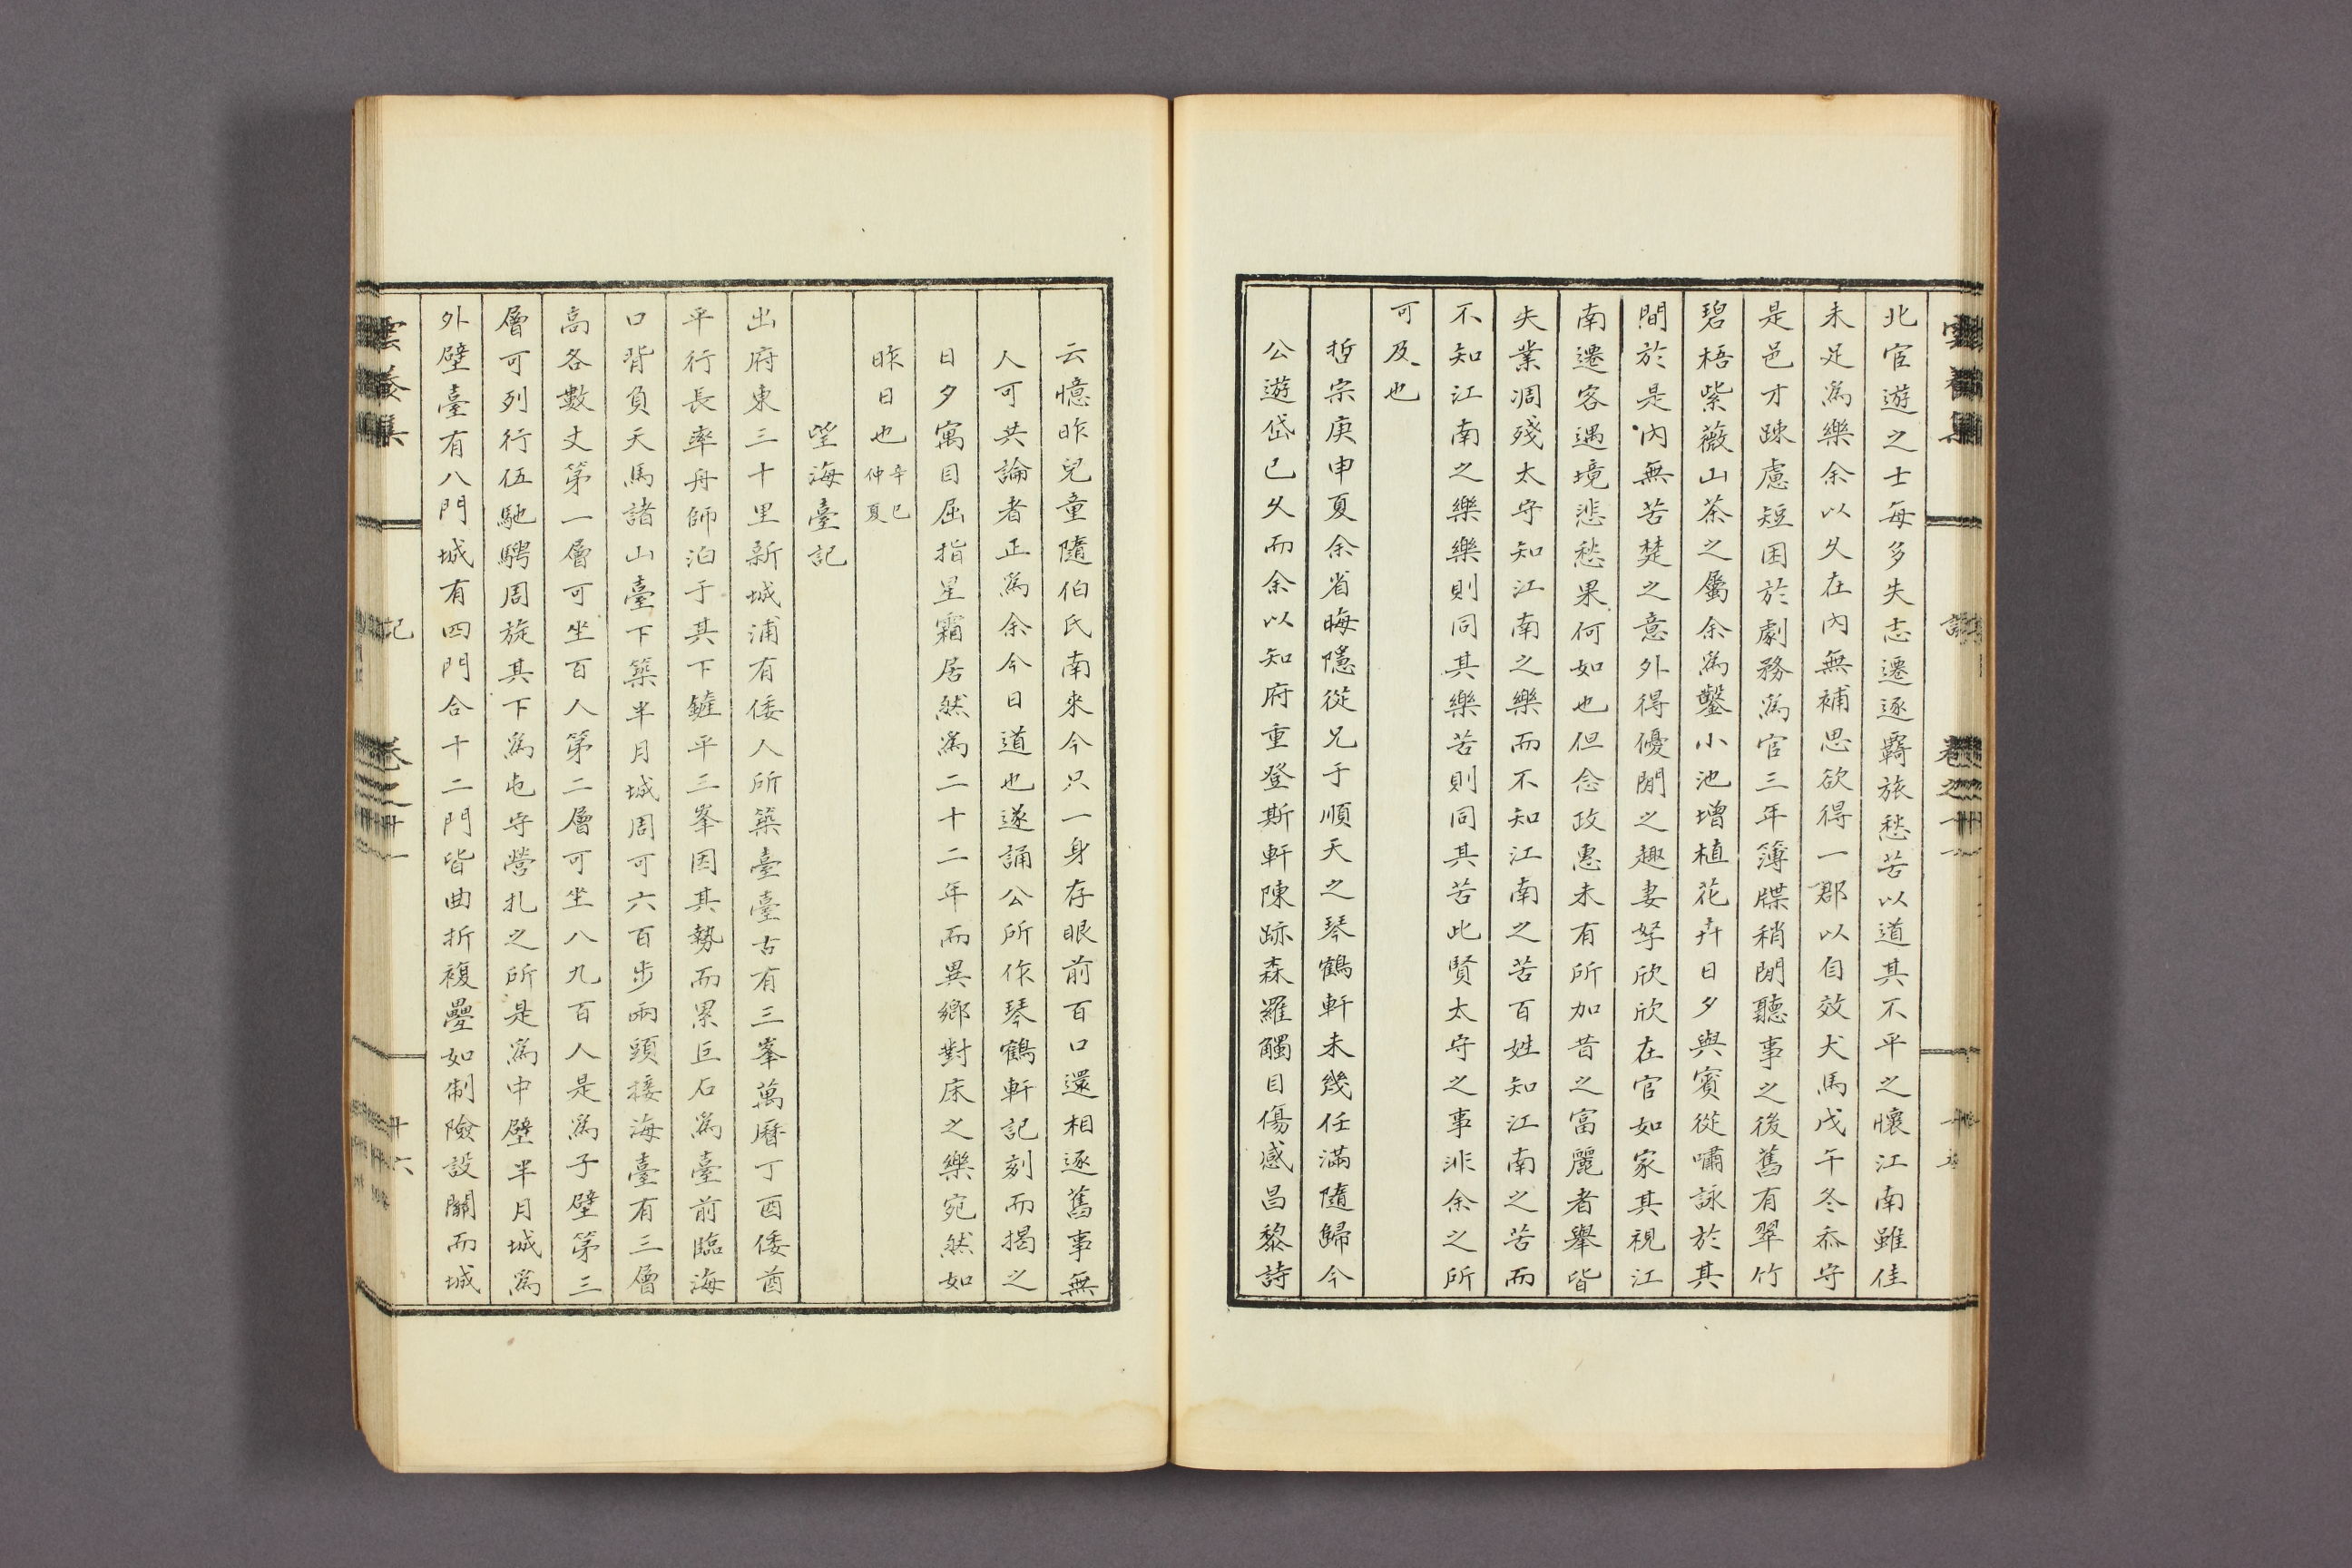 北宦遊之士每多失志遷逐覊旅愁苦以道其不平之懷江南雖佳
未足爲樂余以久在內無補思欲得一郡以自效犬馬戊午冬忝守
是邑才踈慮短困於劇務爲官三年簿牒稍閒聽事之後舊有翠竹
碧梧紫薇山茶之屬余爲鑿小池增植花卉日夕與賓從嘯詠於其
間於是內無苦楚之意外得優閒之趣妻孥欣欣在官如家其視江
南遷客遇境悲愁果何如也但念政惠未有所加昔之富麗者擧皆
失業凋殘太守知江南之樂而不知江南之苦百姓知江南之苦而
不知江南之樂樂則同其樂苦則同其苦此賢太守之事非余之所
可及也
哲宗庚申夏余省晦隱從兄于順天之琴鶴軒未幾任滿隨歸今
公遊岱已久而余以知府重登斯軒陳跡森羅觸目傷感昌黎詩
云憶昨兒童隨伯氏南來今只一身存眼前百口還相逐舊事無
人可共論者正爲余今日道也遂誦公所作琴鶴軒記刻而揭之
日夕寓目屈指星霜居然爲二十二年而異鄕對床之樂宛然如
昨日也 辛巳仲夏
望海臺記
出府東三十里新城浦有倭人所築臺臺古有三峯萬曆丁酉倭酋
平行長率舟師泊于其下鏟平三峯因其勢而累巨石爲臺前臨海
口背負天馬諸山臺下築半月城周可六百步兩頭接海臺有三層
高各數丈第一層可坐百人第二層可坐八九百人是爲子壁第三
層可列行伍馳騁周旋其下爲屯守營扎之所是爲中壁半月城爲
外壁臺有八門城有四門合十二門皆曲折複疊如制險設關而城
記
卷之